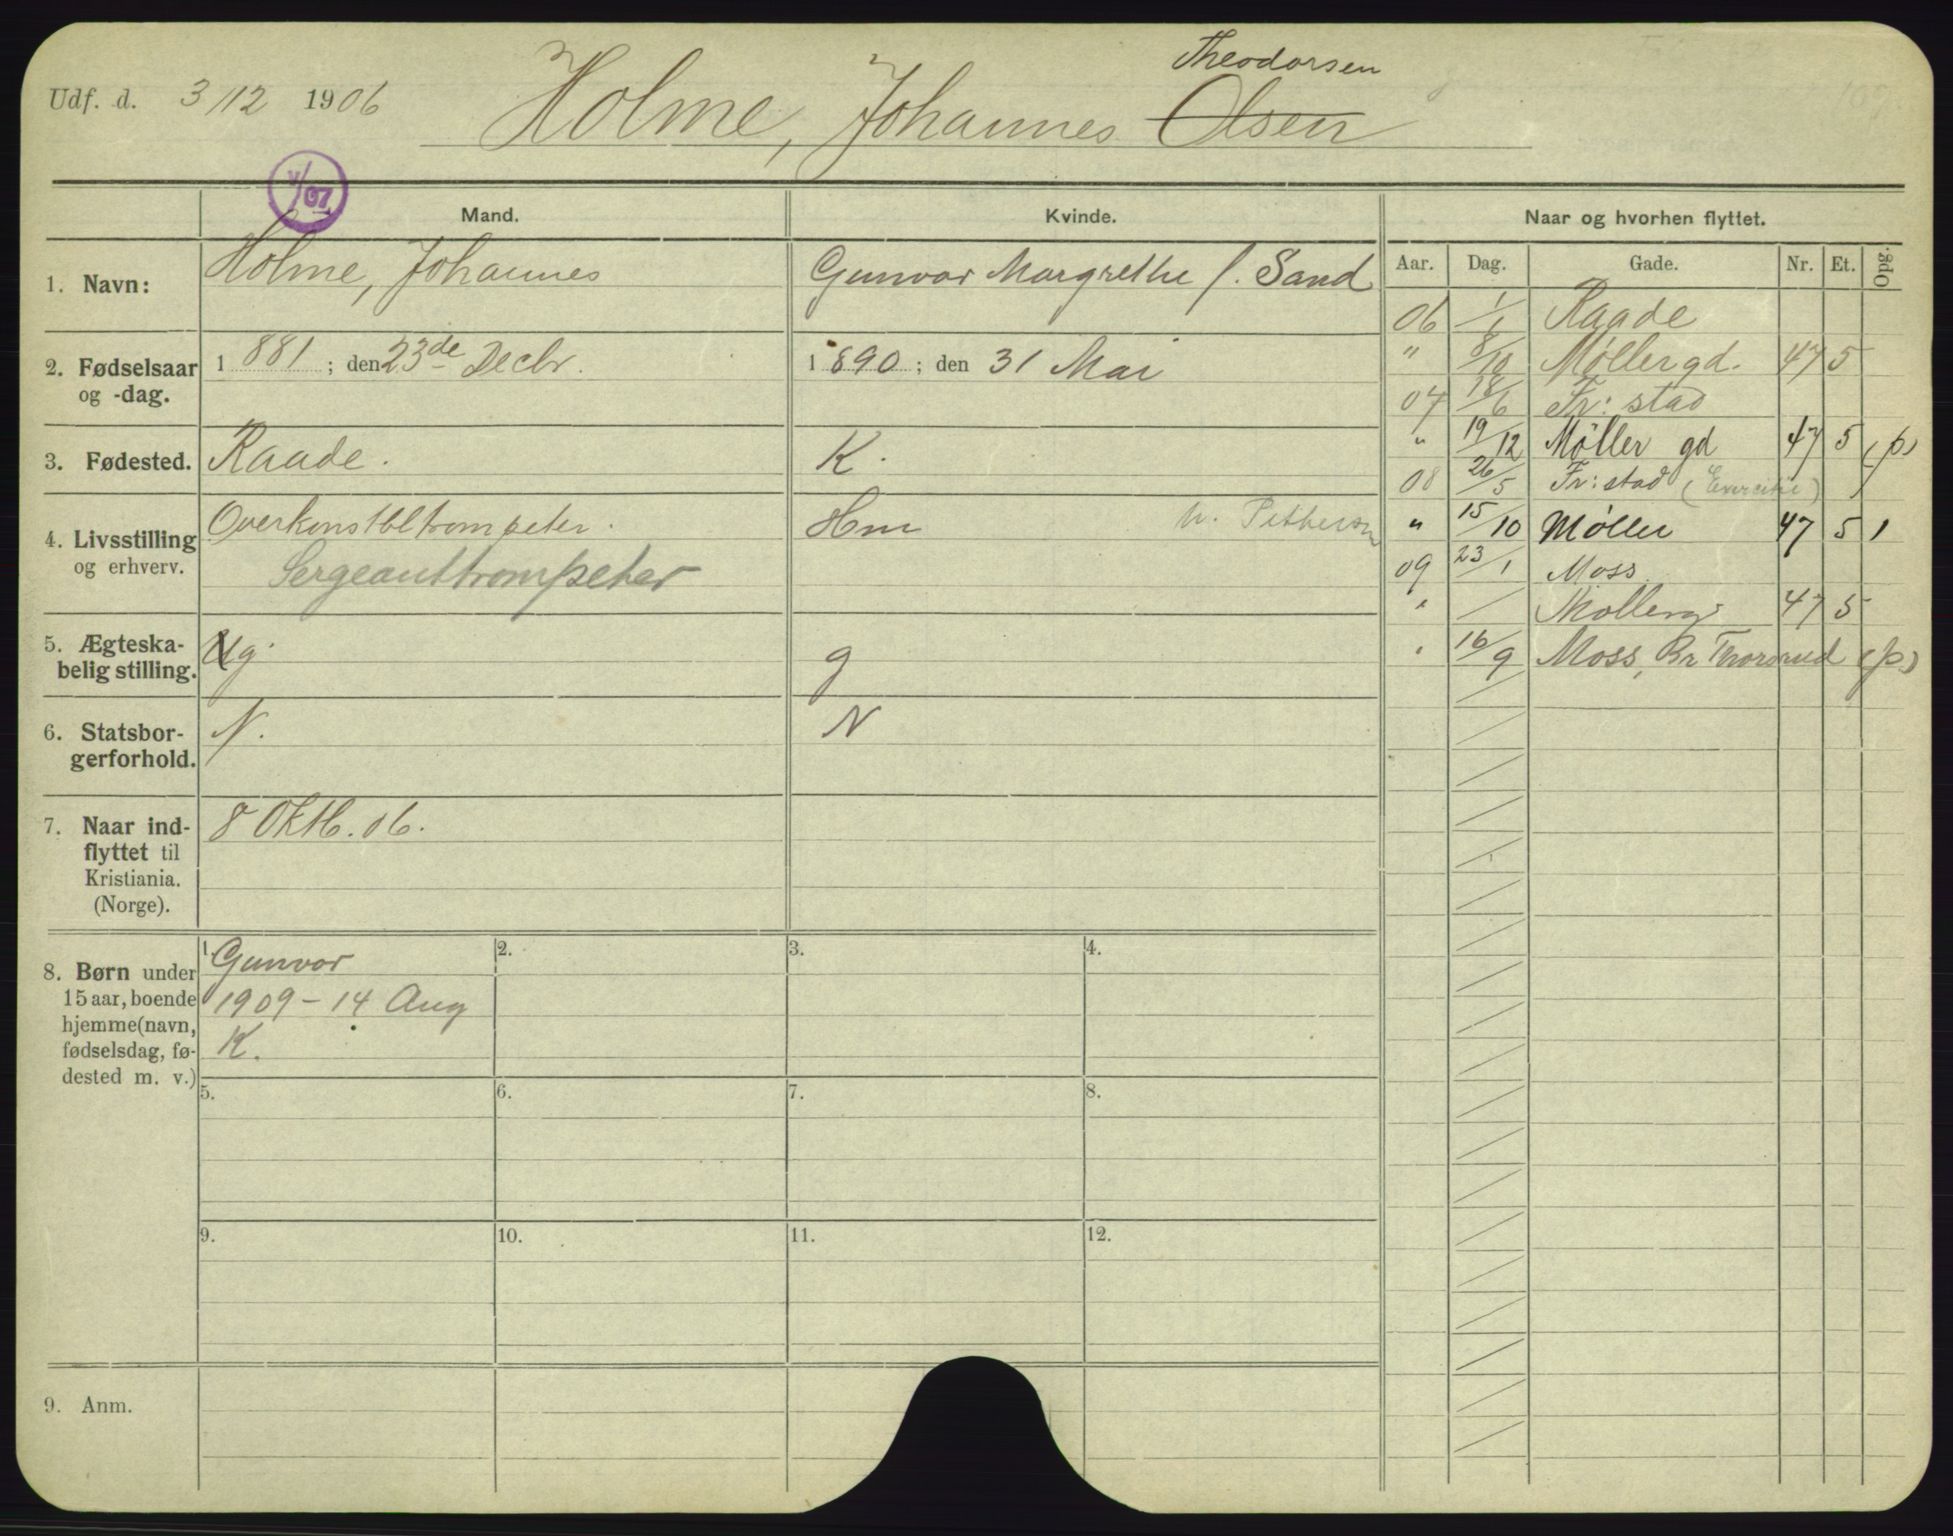 Theodorsen
Udf. d. 3/12 1906 Holme, Johannes Olsen
V/07
Mand. Kvinde. Naar og hvorhen flyttet.
Aar. Dag. Gade. Nr. Et. Opg.
1. Navn: Holme, Johannes Gunvor Margrethe f. Sand
2. Fødselsaar og -dag. 1881; den 23de Decbr. 1890; den 31 Mai
3. Fødested. Raade. K.
4. Livsstilling og erhverv. Overkonstbltrompeter. Hm
Sergeanttrompeter
5. Ægteska-
belig stilling. Ug. g
6. Statsbor-
gerforhold. N. N
7. Naar ind-
flyttet til
Kristiania.
(Norge).
8 Oktb. 06.
06 1/1 Raade
" 8/10 Møllergd. 47 5
07 18/6 Fr:stad
" 19/12 Møller gd 47 5 (p)
08 26/5 Fr:stad (Exercitie)
" 15/10 Møller 47 5 1
09 23/1 Moss
" Møllerg 47 5
" 16/9 Moss, Br (p)
8. Børn under
15 aar, boende
hjemme (navn,
fødselsdag, fø-
dested m. v.)
1. Gunvor
1909 - 14 Aug
K.
2. 3. 4.
5. 6. 7. 8.
9. 10. 11. 12.
9. Anm.